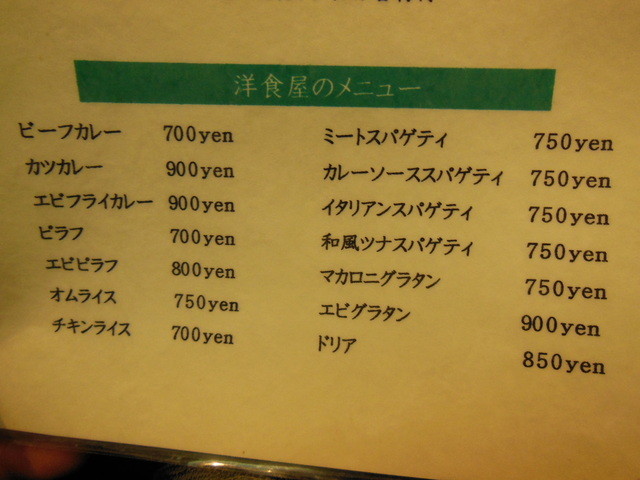 洋食屋のメニュー
ビーフカレー 700yen
カツカレー 900yen
エビフライカレー 900yen
ピラフ 700yen
エビピラフ 800yen
オムライス 750yen
チキンライス 700yen
ミートスパゲティ 750yen
カレーソーススパゲティ 750yen
イタリアンスパゲティ 750yen
和風ツナスパゲティ 750yen
マカロニグラタン 750yen
エビグラタン 900yen
ドリア 850yen